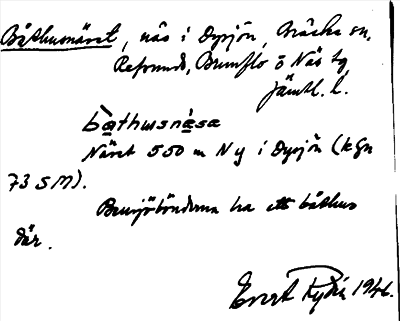 Båthusnäset, näs i Dysjön, Bräcke sn,
Refsunds, Brunflo o Näs tg,
Jämtl. l.
bàthusnäsa
Näset 550 m N y i Dysjön (kGn
73 SM).
Bensjöbönderna ha ett båthus
där.
Evert Rydin 1946.